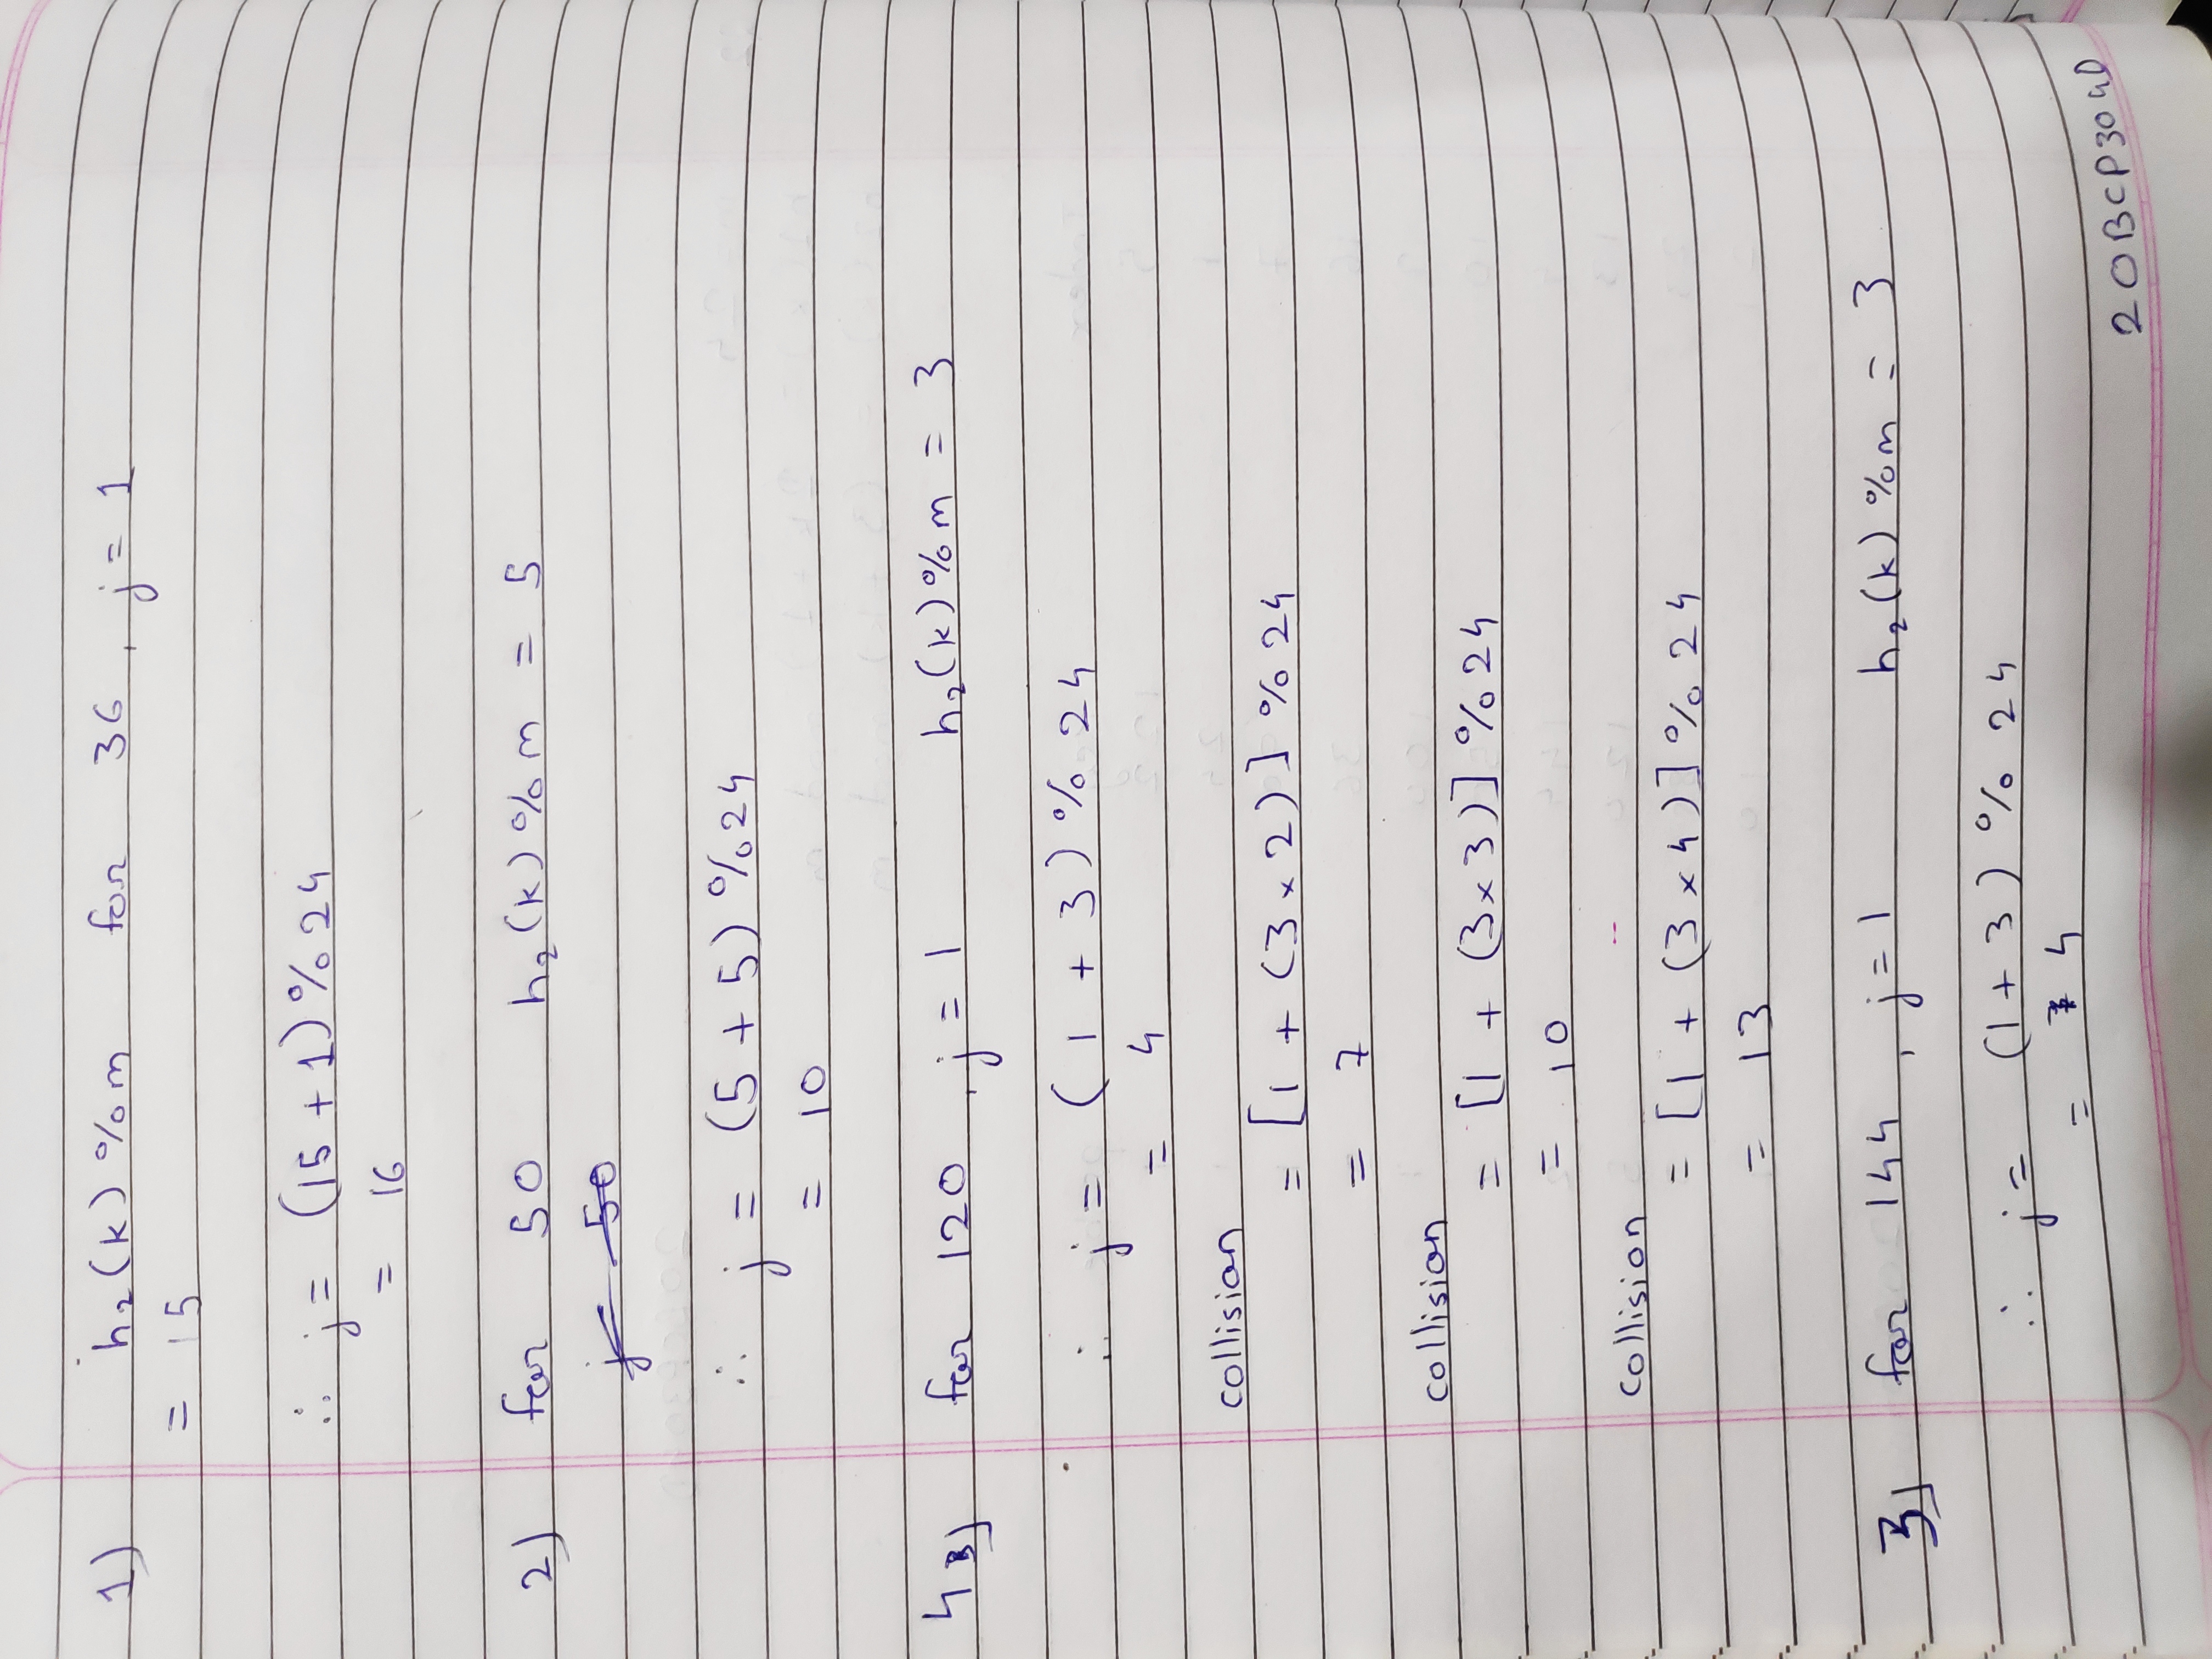 1) h₂(k)%m for 36, j = 1
= 15
∴ j = (15 + 1) % 24
= 16
2) for 50 h₂(k)%m = 5
j = 50
∴ j = (5 + 5) % 24
= 10
4) for 120, j = 1 h₂(k)%m = 3
∴ j = (1 + 3) % 24
= 4
collision
= [1 + (3 × 2)] % 24
= 7
collision
= [1 + (3×3)] % 24
= 10
collision
= [1 + (3 × 4)] % 24
= 13
3) for 144, j = 1 h₂(k)%m = 3
∴ j = (1 + 3) % 24
= 4
20BCP304D